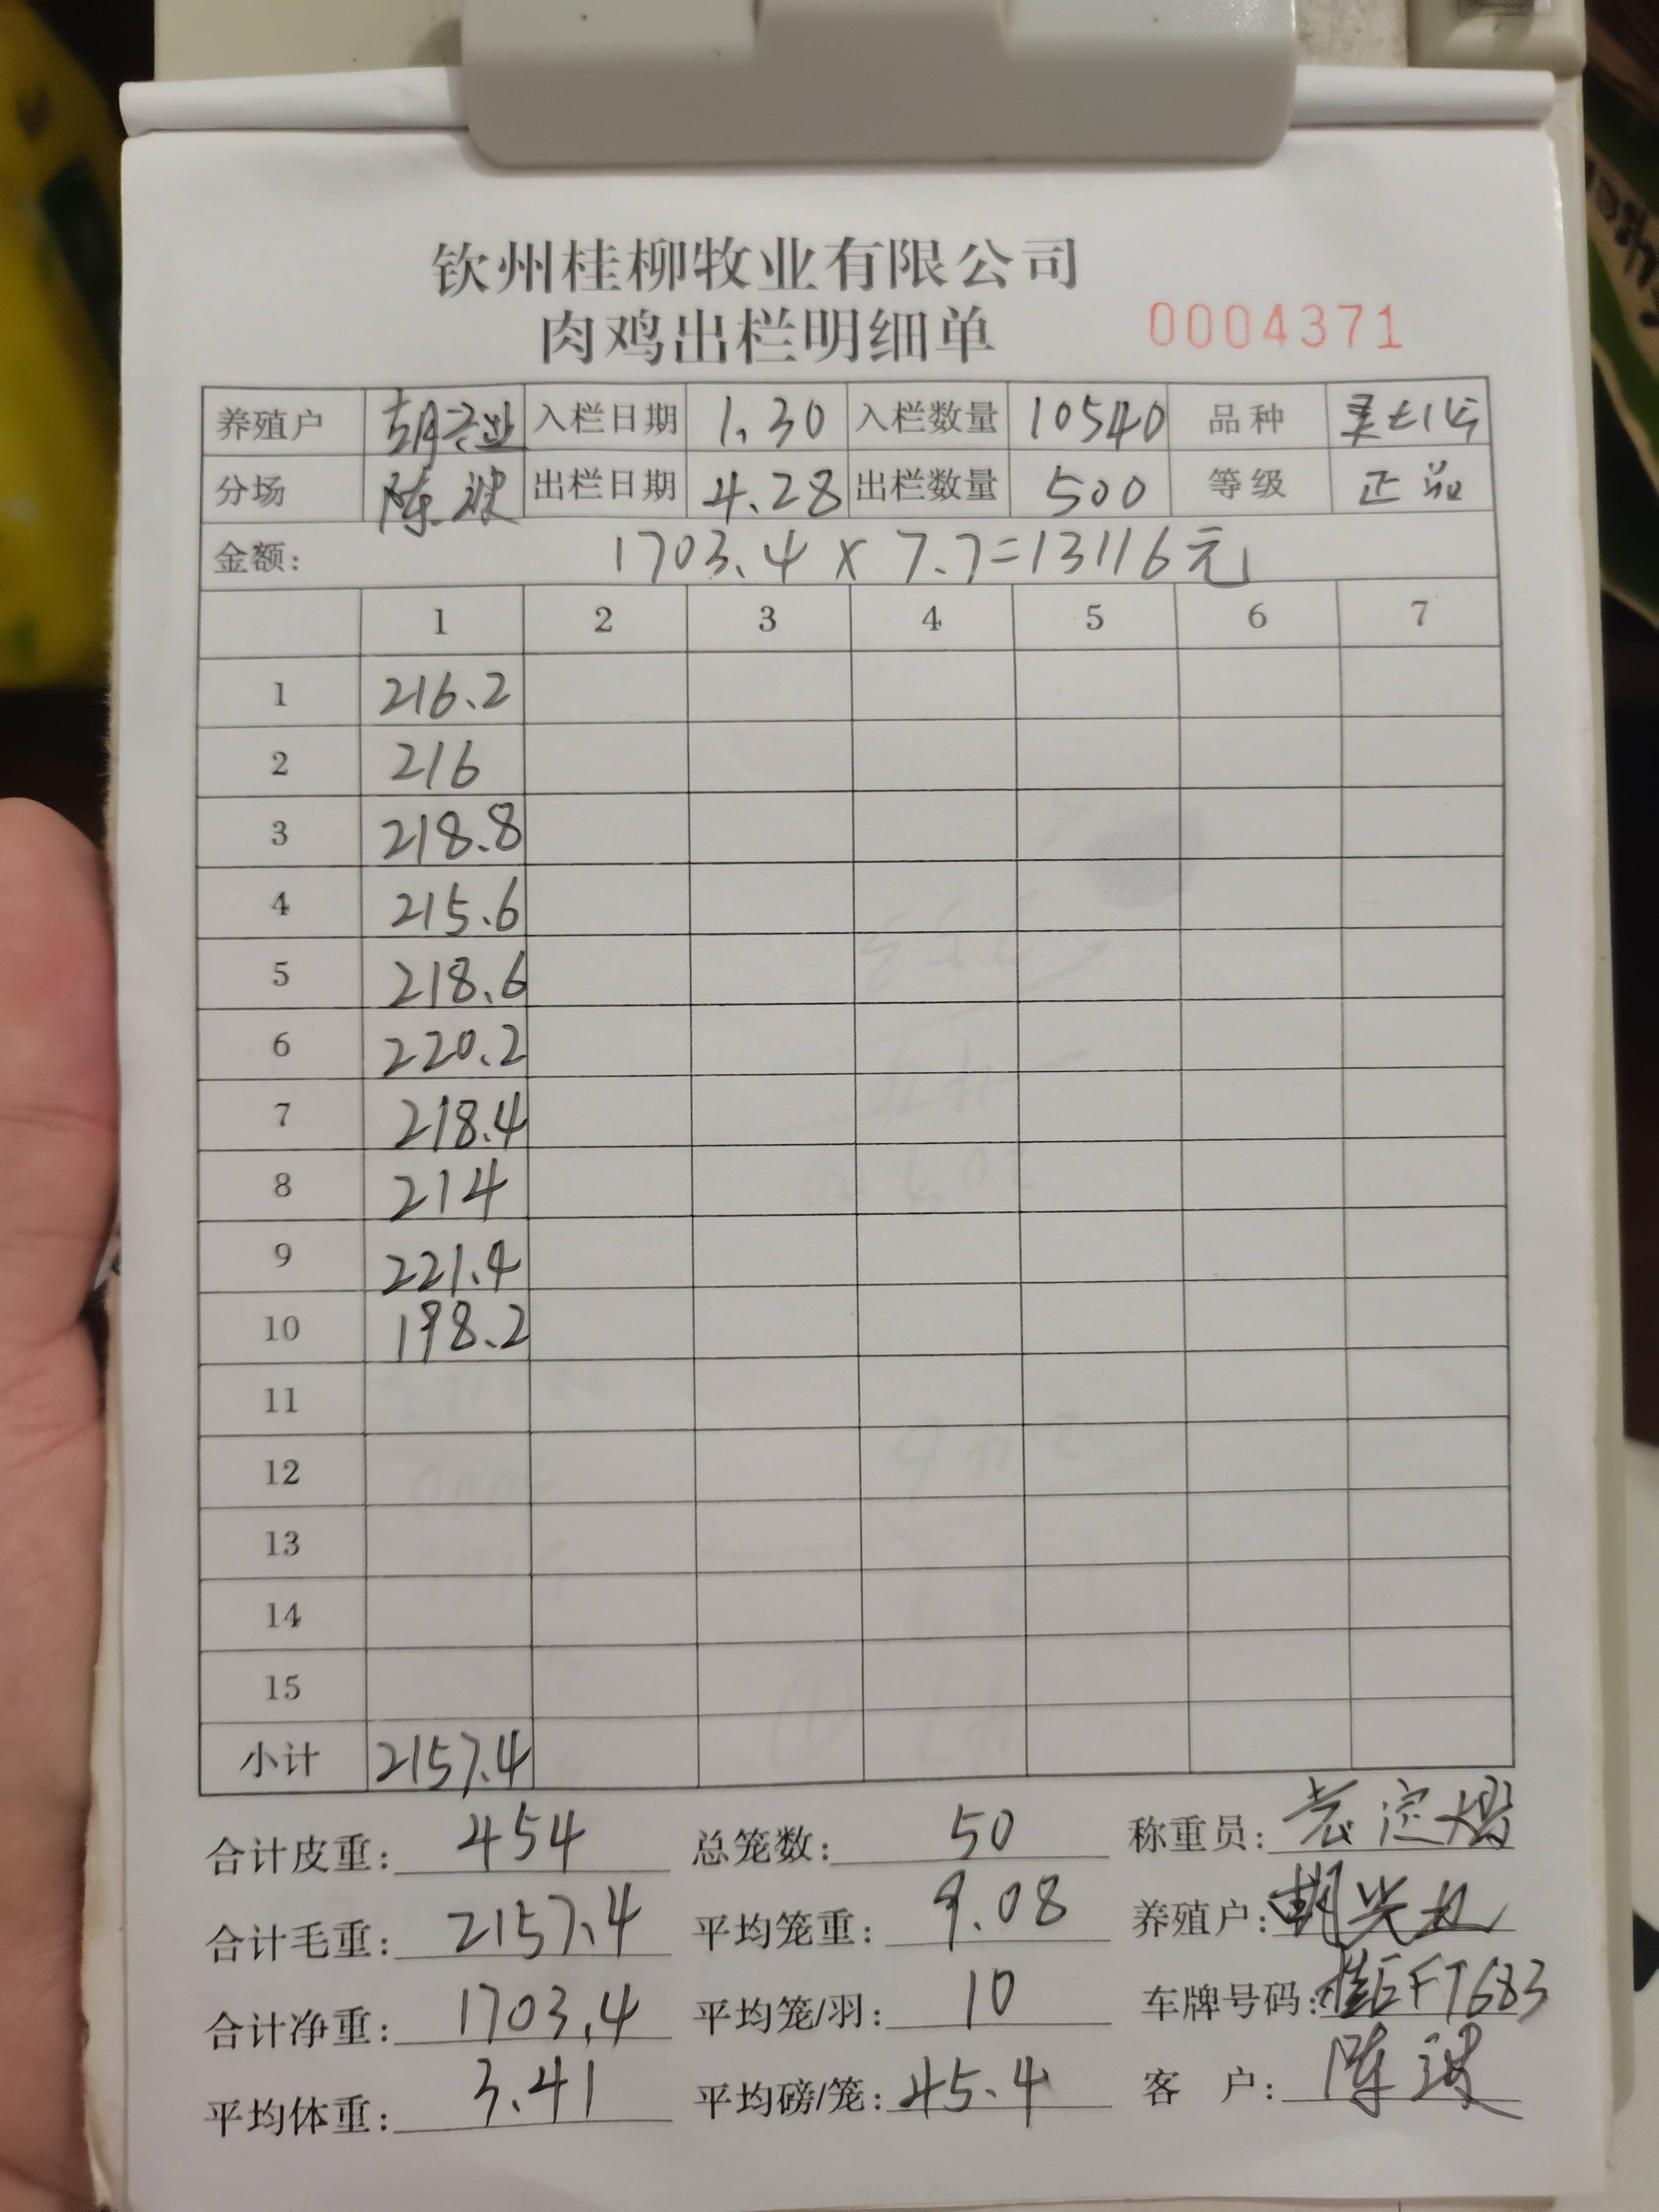 钦州桂柳牧业有限公司
肉鸡出栏明细单 0004371
养殖户 胡兴业 入栏日期 1.30 入栏数量 10540 品种
分场 陈波 出栏日期 4.28 出栏数量 500 等级 正品
金额: 1703.4 x 7.7=13116元
1 2 3 4 5 6 7
1 216.2
2 216
3 218.8
4 215.6
5 218.6
6 220.2
7 218.4
8 214
9 221.4
10 198.2
11
12
13
14
15
小计 2157.4
合计皮重: 454 总笼数: 50 称重员:
合计毛重: 2157.4 平均笼重: 9.08 养殖户: 胡兴业
合计净重: 1703.4 平均笼/羽: 10 车牌号码: 桂EFT683
平均体重: 3.41 平均磅/笼: 45.4 客 户: 陈波